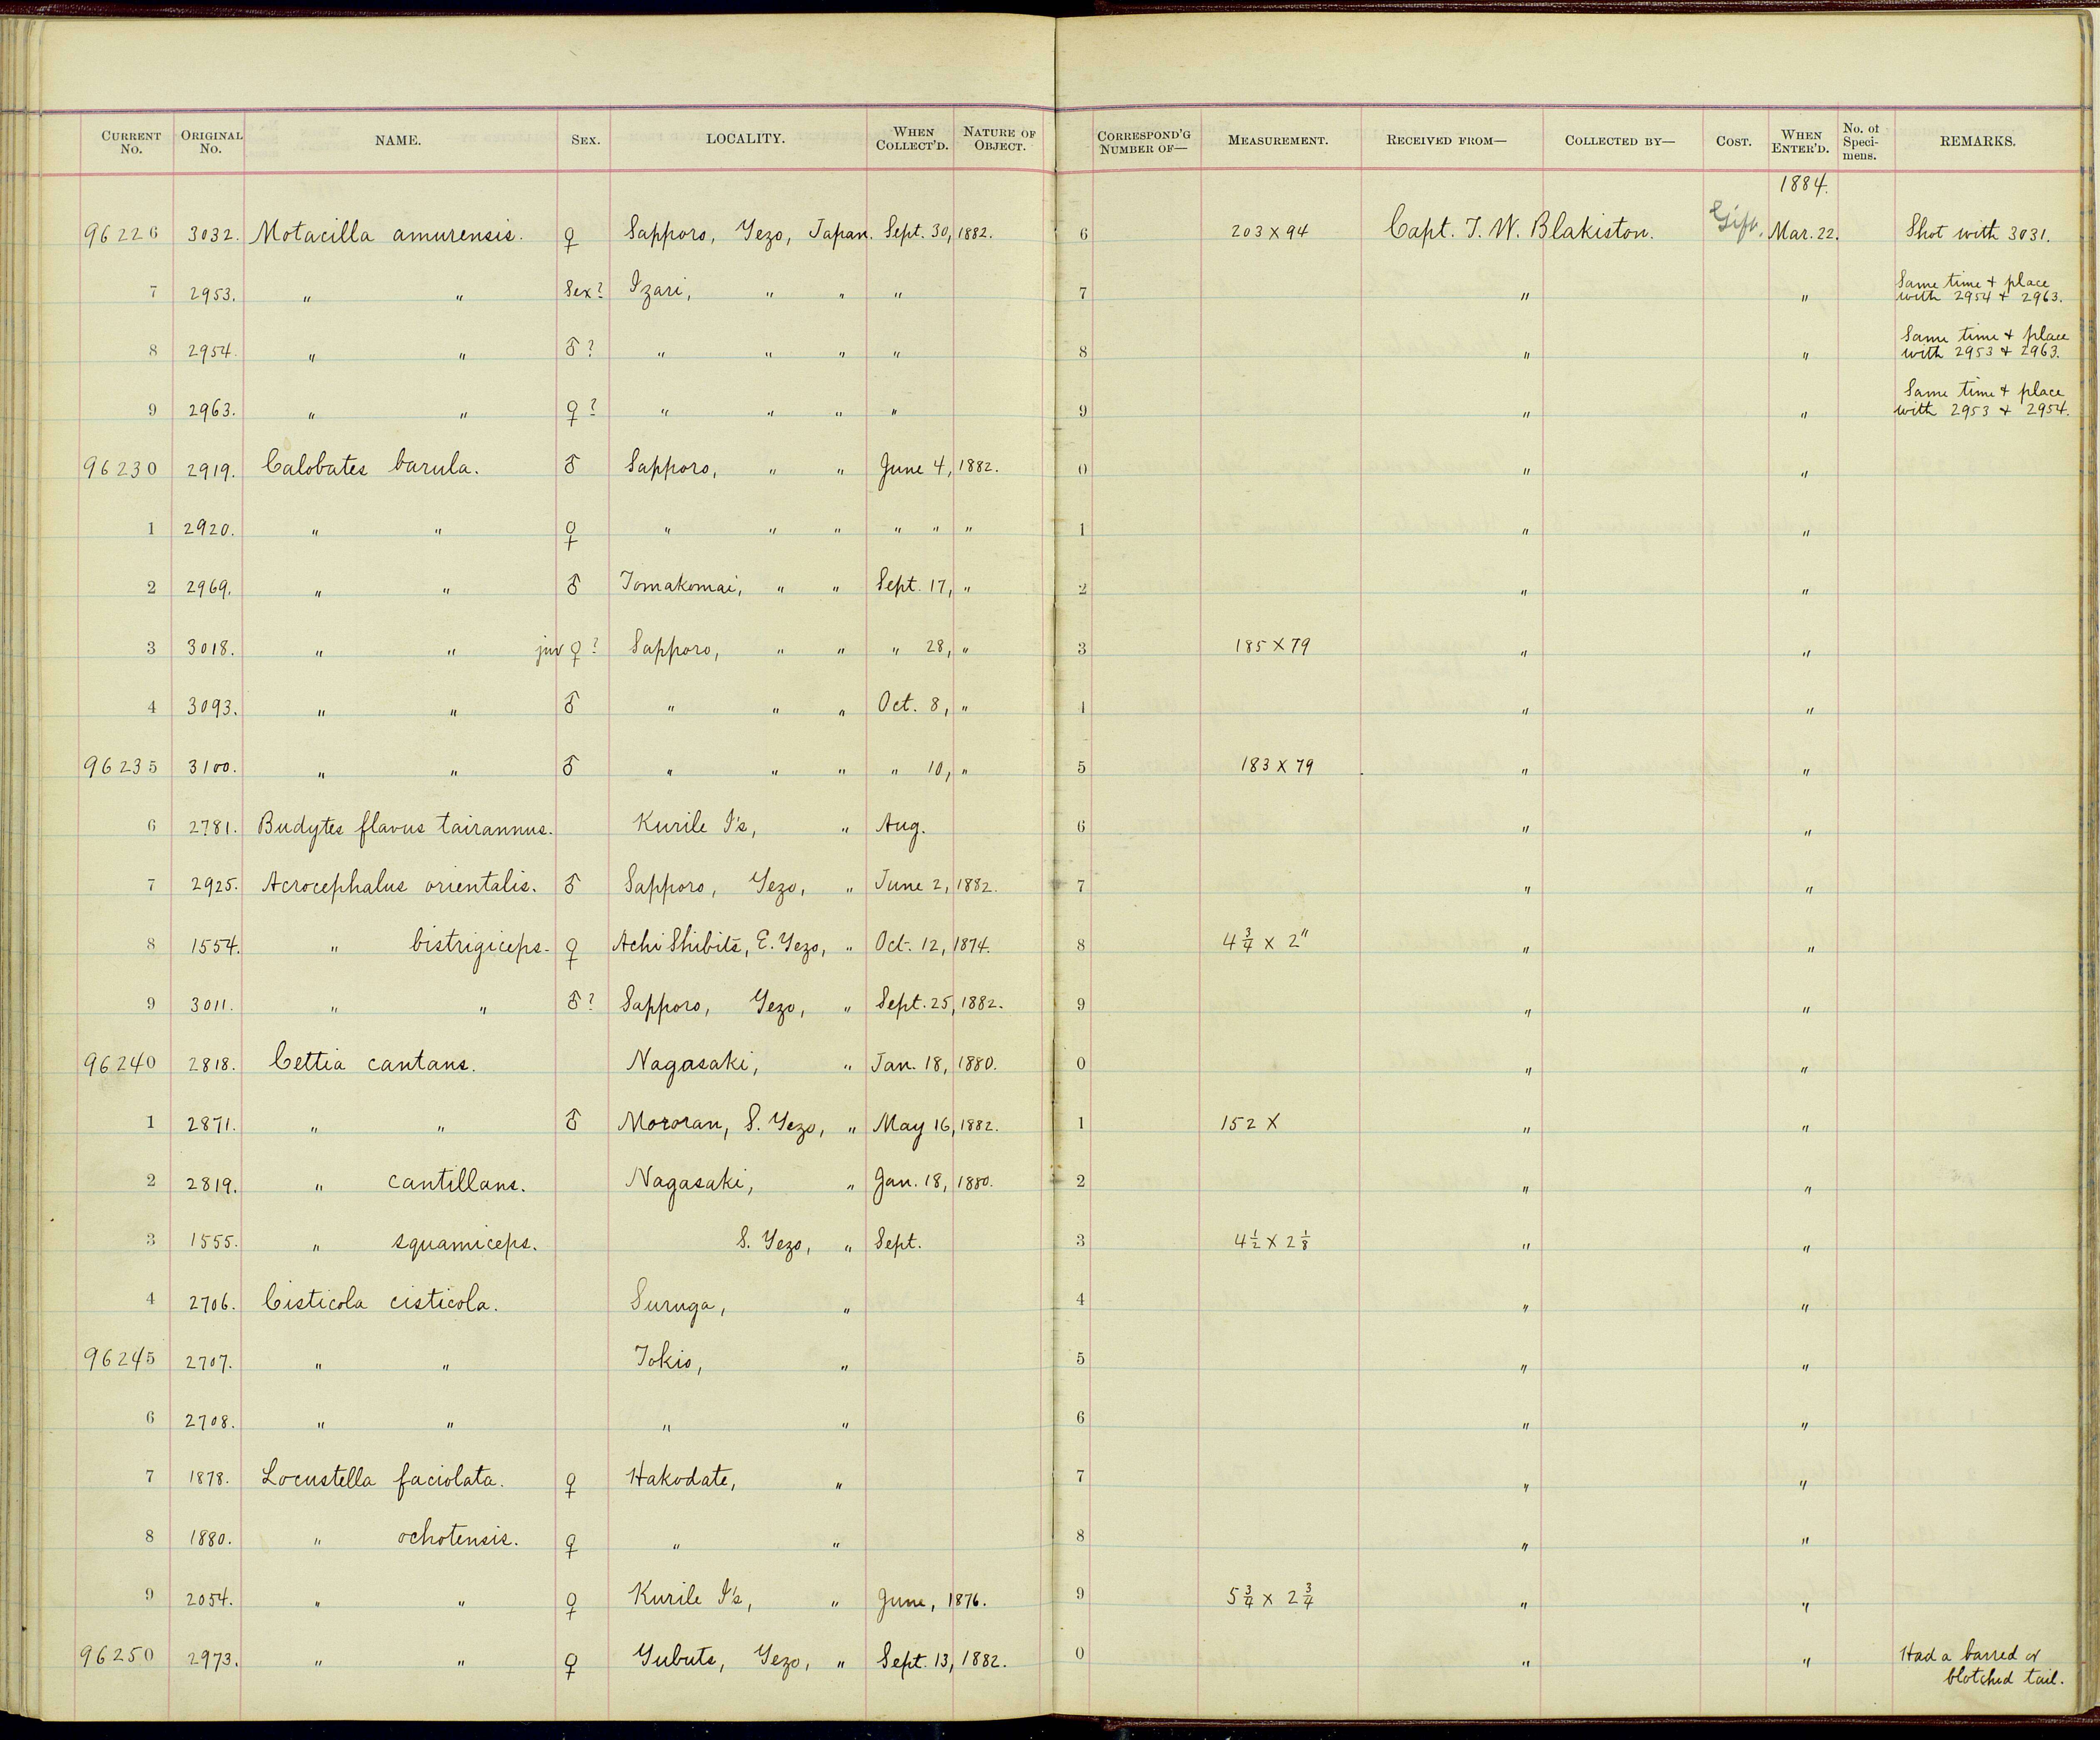 CURRENT No. ORIGINAL No. NAME. SEX. LOCALITY. WHEN COLLECT'D. NATURE OF OBJECT. CORRESPOND'G NUMBER OF— MEASUREMENT. RECEIVED FROM— COLLECTED BY— COST. WHEN ENTER'D. No. of Specimens. REMARKS.
1884.
96226 3032. Motacilla amurensis. ♀ Sapporo, Yezo, Japan. Sept. 30, 1882. 6 203 x 94 Capt. T. W. Blakiston. Gift. Mar. 22. Shot with 3031.
7 2953. " " Sex? Izari, " " " 7 " " Same time + place with 2954 + 2963.
8 2954. " " ♂? " " " " 8 " " Same time + place with 2953 + 2963.
9 2963. " " ♀? " " " " 9 " " Same time + place with 2953 + 2954.
96230 2919. Calobates barula. ♂ Sapporo, " " June 4, 1882. 0 " "
1 2920. " " ♀ " " " " " " 1 " "
2 2969. " " ♂ Tomakomai, " " Sept. 17, " 2 " "
3 3018. " " juv ♀? Sapporo, " " " 28, " 3 185 x 79 " "
4 3093. " " ♂ " " " Oct. 8, " 4 " "
96235 3100. " " ♂ " " " " 10, " 5 183 x 79 " "
6 2781. Budytes flavus tairannus. Kurile I's, " Aug. 6 " "
7 2925. Acrocephalus orientalis. ♂ Sapporo, Yezo, " June 2, 1882. 7 " "
8 1554. " bistrigiceps. ♀ Achi Shibits, E. Yezo, " Oct. 12, 1874. 8 4 3/4 x 2" " "
9 3011. " " ♂? Sapporo, Yezo, " Sept. 25, 1882. 9 " "
96240 2818. Cettia cantans. Nagasaki, " Jan. 18, 1880. 0 " "
1 2871. " " ♂ Mororan, S. Yezo, " May 16, 1882. 1 152 x " "
2 2819. " cantillans. Nagasaki, " Jan. 18, 1880. 2 " "
3 1555. " squamiceps. S. Yezo, " Sept. 3 4 1/2 x 2 1/8 " "
4 2706. Cisticola cisticola. Suruga, " 4 " "
96245 2707. " " Tokio, " 5 " "
6 2708. " " " " 6 " "
7 1878. Locustella faciolata. ♀ Hakodate, " 7 " "
8 1880. " ochotensis. ♀ " " 8 " "
9 2054. " " ♀ Kurile I's, " June, 1876. 9 5 3/4 x 2 3/4 " "
96250 2973. " " ♀ Yubuts, Yezo, " Sept. 13, 1882. 0 " " Had a barred or blotched tail.